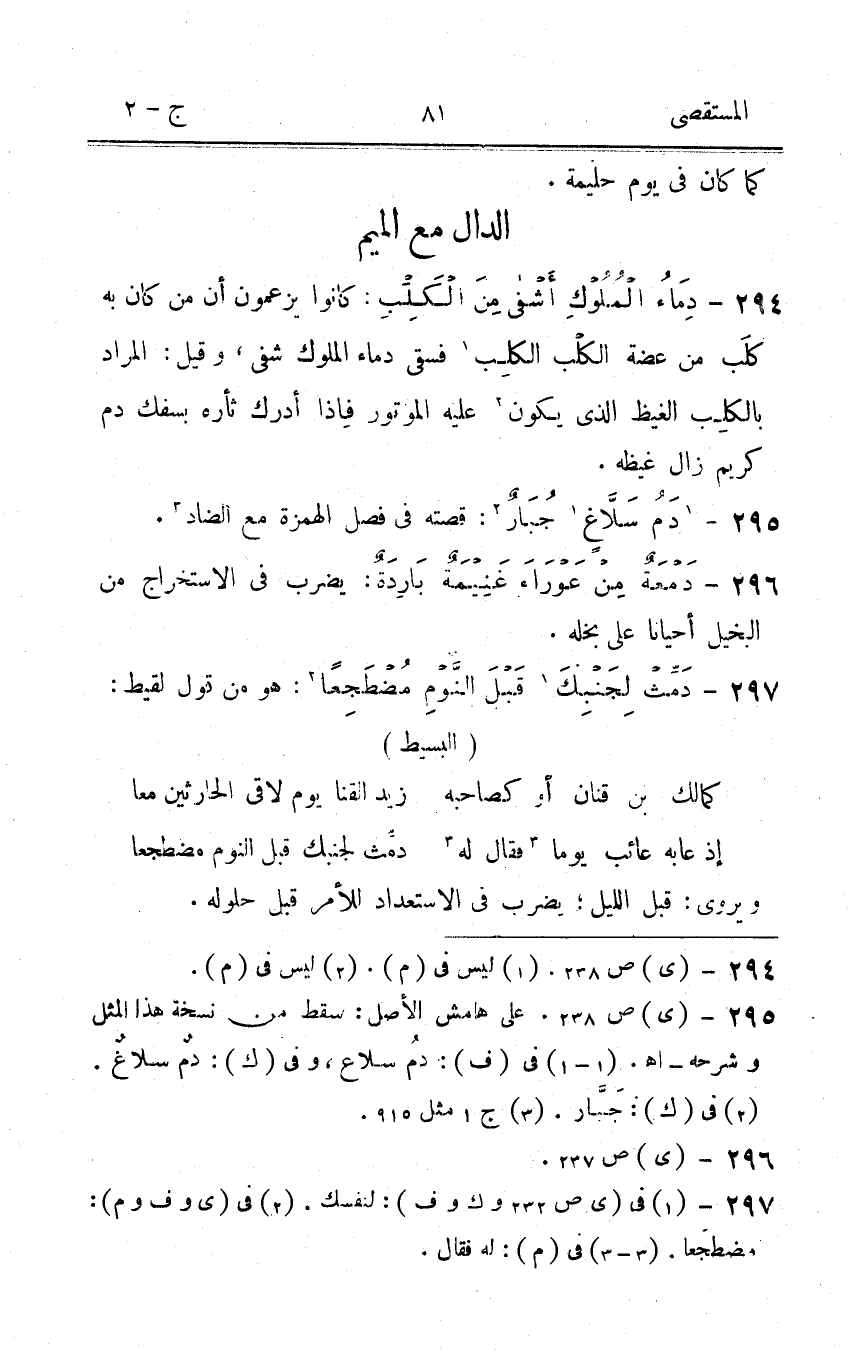 المستقصى ٨١ ج – ٢
كما كان فى يوم حليمة .
الدال مع الميم
٢٩٤ – دِمَاءُ الْمُلُوْكِ أَشْفٰى مِنَ الْكَلَبِ : كانوا يزعمون أن من كان به
كلَب من عضة الكلْب الكلِب ١ فسقى دماء الملوك شفى ، و قيل : المراد
بالكلِب الغيظ الذى يكون ٢ عليه الموتور فاذا أدرك ثأره بسفك دم
كريم زال غيظه .
٢٩٥ – ١ دَمُ سَلَّاغٍ ١ جُبَارٌ ٢ : قصته فى فصل الهمزة مع الضاد ٣ .
٢٩٦ – دَمْعَةٌ مِنْ عَوْرَاءَ غَنِيمَةٌ بَارِدَةٌ : يضرب فى الاستخراج من
البخيل أحيانا على بخله .
٢٩٧ – دَمِّثْ لِجَنْبِكَ ١ قَبْلَ النَّوْمِ مُضْطَجِعًا ٢ : هو من قول لقيط :
( البسيط )
كمالك بن قنان أو كصاحبه زيد القنا يوم لاقى الحارثين معا
إذ عابه عائب يوما ٣ فقال له ٣ دمِّث لجنبك قبل النوم مضطجعا
و يروى : قبل الليل ؛ يضرب فى الاستعداد للأمر قبل حلوله .
٢٩٤ – (ى) ص ٢٣٨ . (١) ليس فى (م) . (٢) ليس فى (م) .
٢٩٥ – (ى) ص ٢٣٨ . على هامش الأصل : سقط من نسخة هذا المثل
و شرحه – اه . (١–١) فى (ف) : دمُ سلاع ، و فى (ك) : دمٌ سلاغٌ .
(٢) فى (ك) : جَبَّار . (٣) ج ١ مثل ٩١٥ .
٢٩٦ – (ى) ص ٢٣٧ .
٢٩٧ – (١) فى (ى ص ٢٣٢ و ك و ف) : لنفسك . (٢) فى (ى و ف و م) :
مضطجَعا . (٣–٣) فى (م) : له فقال .